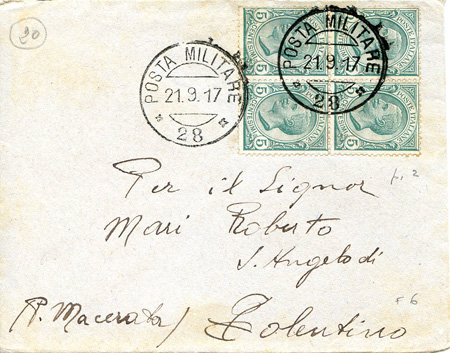 20
POSTA MILITARE
21.9.17
28
POSTA MILITARE
21.9.17
28
5
5
5
5
Per il Signor
Mari Roberto
S. Angelo di
(P. Macerata) Tolentino
F 6